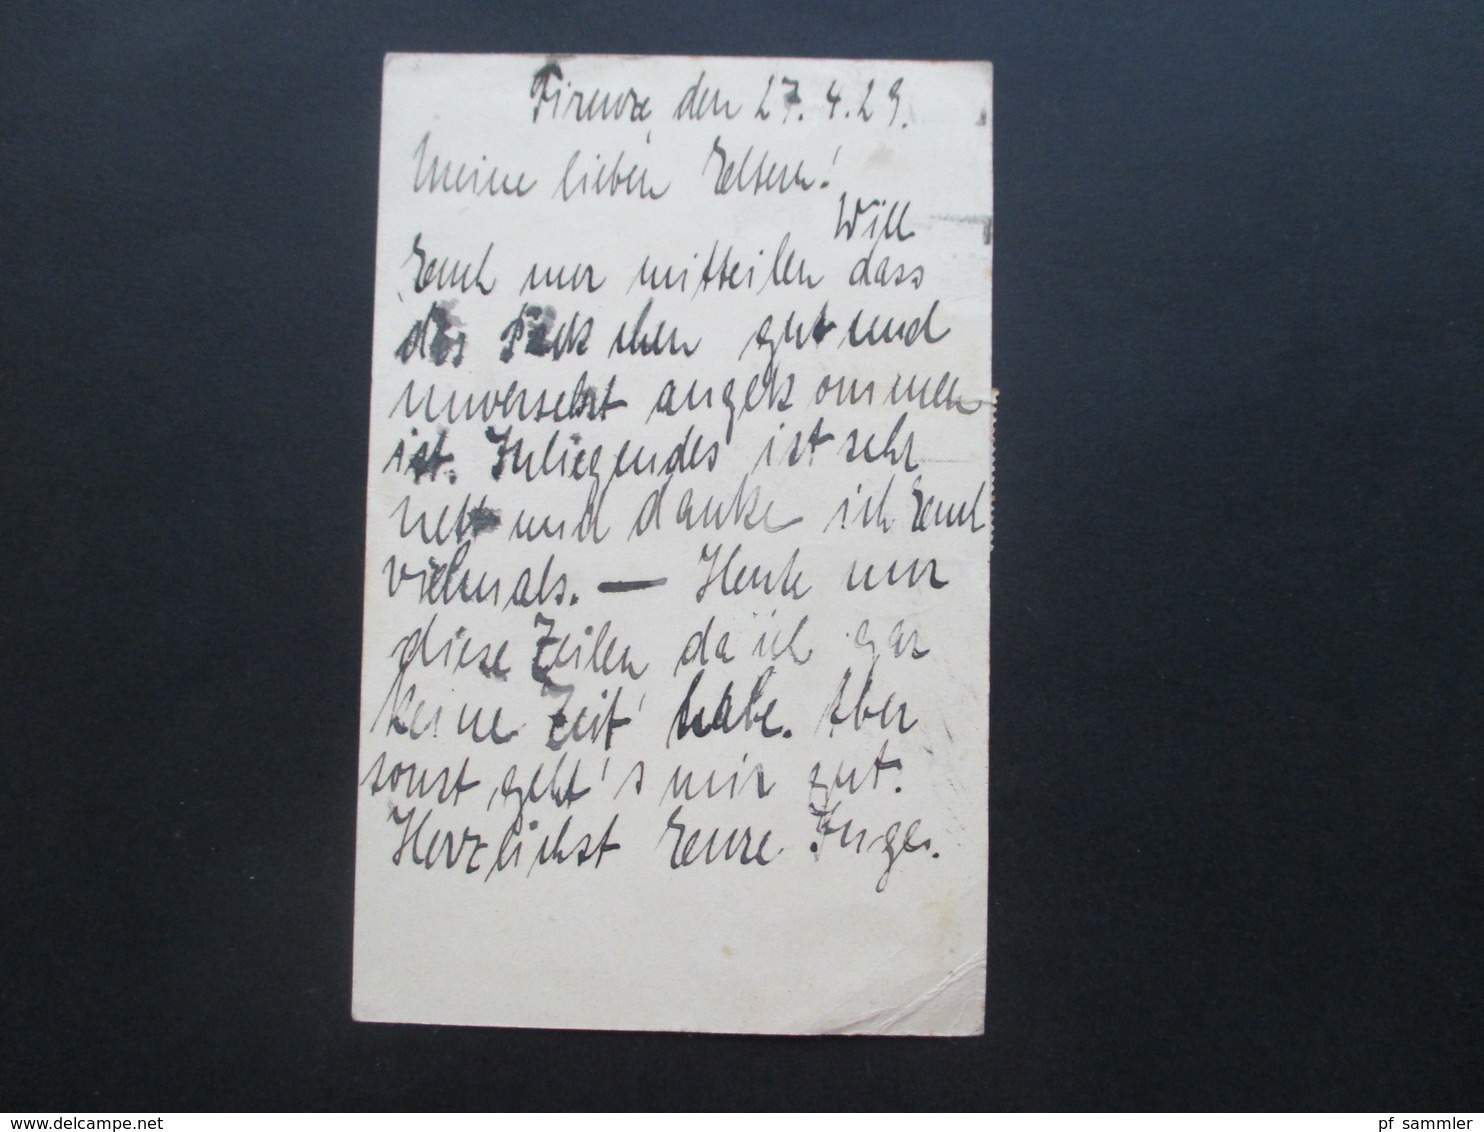 Firenze, den 27.4.29.
Meine lieben Eltern!
Will
Euch nur mitteilen dass
das Päckchen gut und
unversehrt angekommen
ist. Inliegendes ist sehr
nett und danke ich Euch
vielmals. — Heute nur
diese Zeilen da ich gar
keine Zeit habe. Aber
sonst geht's mir gut.
Herzlichst Eure Inge.
www.delcampe.net
pf_sammler